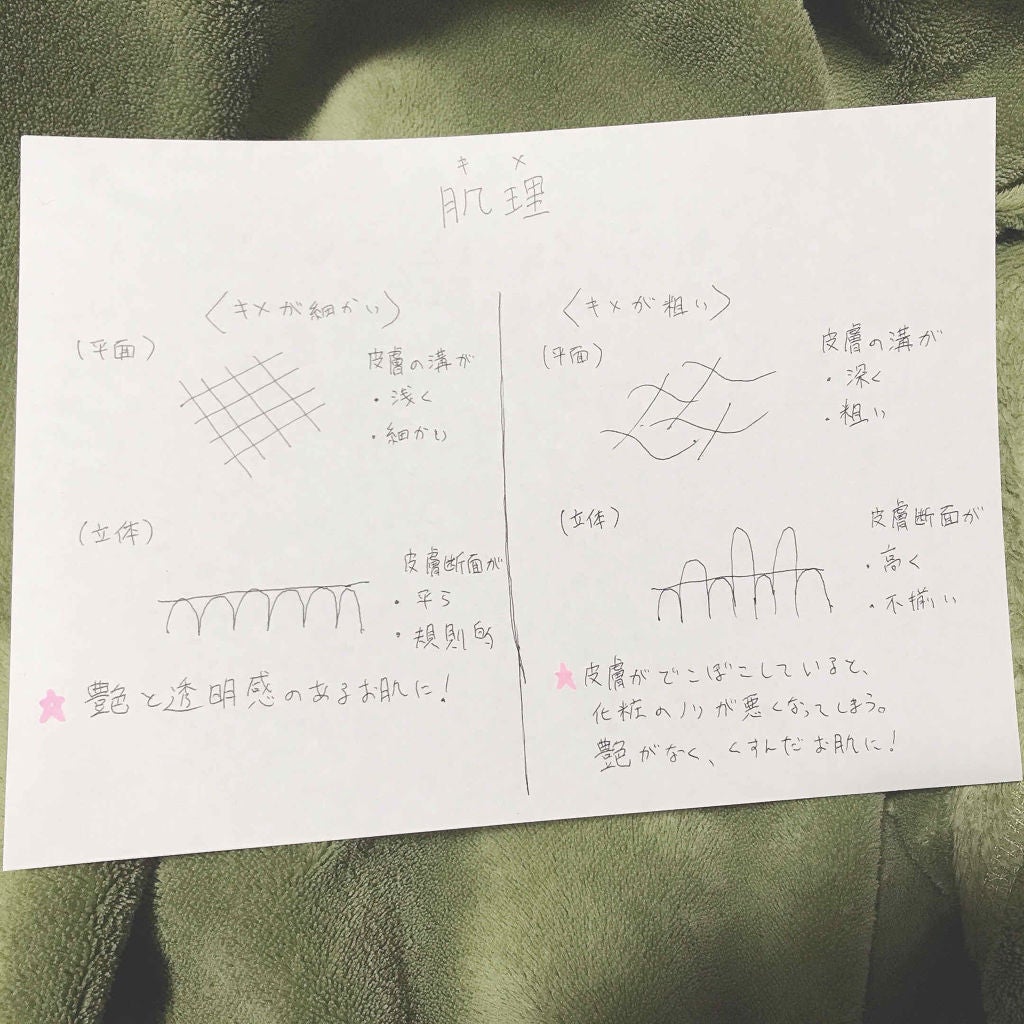 キメ
肌理
〈キメが細かい〉
(平面)
皮膚の溝が
・浅く
・細かい
(立体)
皮膚断面が
・平ら
・規則的
艶と透明感のあるお肌に!
〈キメが粗い〉
(平面)
皮膚の溝が
・深く
・粗い
(立体)
皮膚断面が
・高く
・不揃い
皮膚がでこぼこしていると、
化粧のノリが悪くなってしまう。
艶がなく、くすんだお肌に!